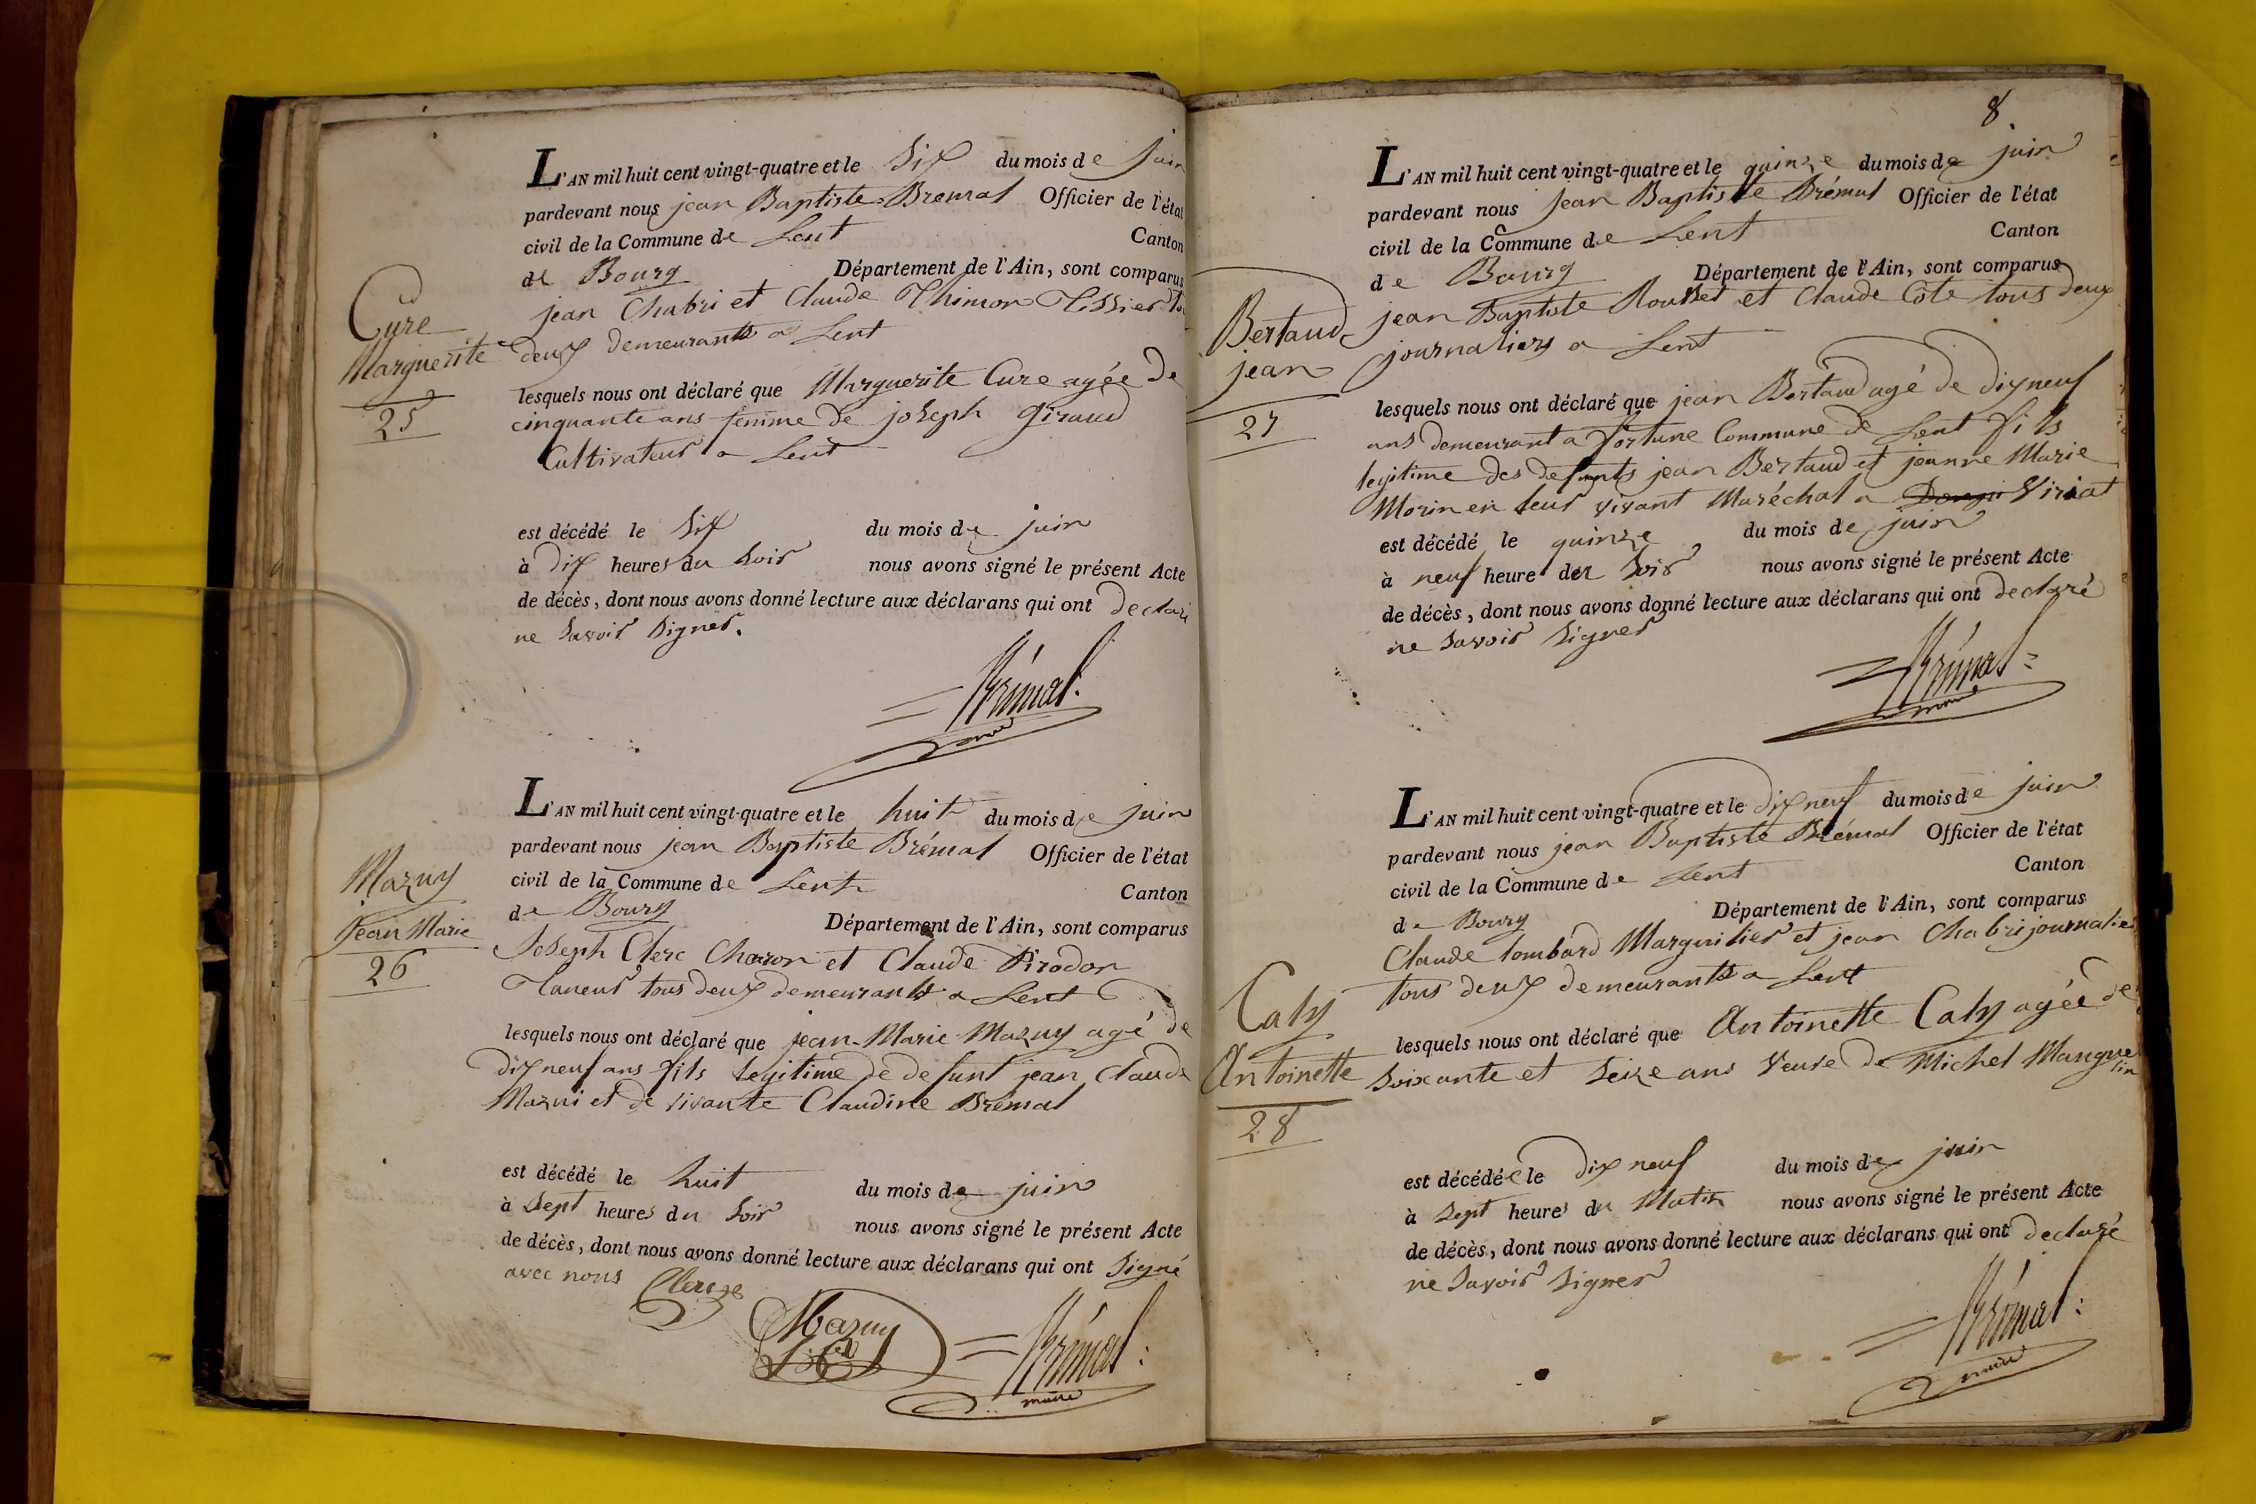 Cure
Marguerite
25
L'AN mil huit cent vingt-quatre et le Six du mois de juin
pardevant nous jean Baptiste Bremal Officier de l'état
civil de la Commune de Lent Canton
de Bourg Département de l'Ain, sont comparus
jean Chabri et Claude Thimon Tissier
deux demeurants a Lent
lesquels nous ont déclaré que Marguerite Cure agée de
cinquante ans femme de joseph giraud
Cultivateur a Lent
est décédé le Six du mois de juin
à dix heures du Soir nous avons signé le présent Acte
de décès, dont nous avons donné lecture aux déclarans qui ont declaré
ne Savoir Signer.
Brémal
maire
Mazuy
Jean Marie
26
L'AN mil huit cent vingt-quatre et le huit du mois de juin
pardevant nous jean Baptiste Brémal Officier de l'état
civil de la Commune de Lent Canton
de Bourg Département de l'Ain, sont comparus
Joseph Clerc Charon et Claude Pirodon
Taneur tous deux demeurants a Lent
lesquels nous ont déclaré que jean-Marie Mazuy agé de
dix neuf ans fils legitime de defunt jean Claude
Mazui et de vivante Claudine Brémal
est décédé le huit du mois de juin
à Sept heures du Soir nous avons signé le présent Acte
de décès, dont nous avons donné lecture aux déclarans qui ont Signé
avec nous
Mazuy
Brémal
maire
8
Bertaud
jean
27
L'AN mil huit cent vingt-quatre et le quinze du mois de juin
pardevant nous Jean Baptiste Brémal Officier de l'état
civil de la Commune de Lent Canton
de Bourg Département de l'Ain, sont comparus
jean Baptiste Rousset et Claude Cote tous deux
journaliers a Lent
lesquels nous ont déclaré que jean Bertaud agé de dix neuf
ans demeurant a fortune Commune de Lent fils
legitime des defunts jean Bertaud et jeanne Marie
Morin en leur vivant Maréchal a Viriat
est décédé le quinze du mois de juin
à neuf heure du Soir nous avons signé le présent Acte
de décès, dont nous avons donné lecture aux déclarans qui ont declaré
ne Savoir Signer
Brémal
maire
Caty
Antoinette
28
L'AN mil huit cent vingt-quatre et le dix neuf du mois de juin
pardevant nous jean Baptiste Brémal Officier de l'état
civil de la Commune de Lent Canton
de Bourg Département de l'Ain, sont comparus
Claude lombard Marguilier et jean Chabri journalier
tous deux demeurants a Lent
lesquels nous ont déclaré que Antoinette Caty agée de
Soixante et Seize ans Veuve de Michel Manguelin
est décédée le dix neuf du mois de juin
à Sept heures du Matin nous avons signé le présent Acte
de décès, dont nous avons donné lecture aux déclarans qui ont declaré
ne Savoir Signer
Brémal
maire